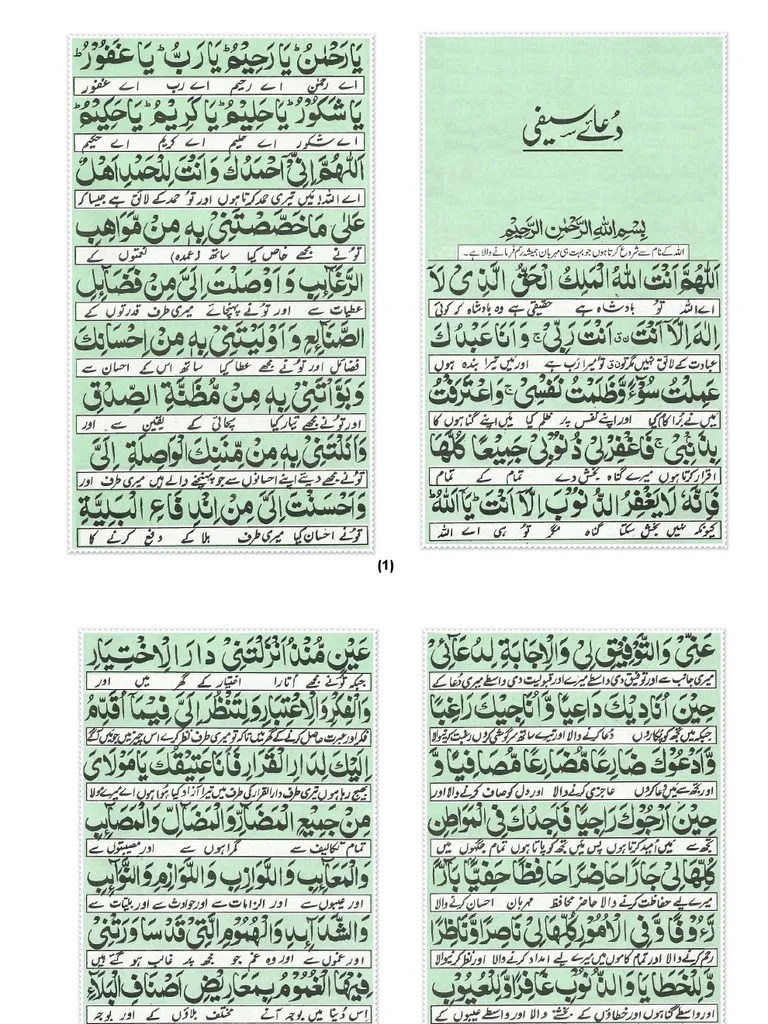 دُعائے سیفی
بِسْمِ اللهِ الرَّحْمٰنِ الرَّحِيْمِ
اللہ کے نام سے شروع کرتا ہوں جو بہت ہی مہربان ہمیشہ رحم فرمانے والا ہے۔
اَللّٰهُمَّ اَنْتَ اللهُ الْمَلِكُ الْحَقُّ الَّذِىْ لَآ
اے اللہ تو بادشاہ ہے حقیقی ہے وہ بادشاہ کہ کوئی
اِلٰهَ اِلَّآ اَنْتَ اَنْتَ رَبِّىْ وَ اَنَا عَبْدُكَ
عبادت کے لائق نہیں مگر تو، تو میرا رب ہے اور میں تیرا بندہ ہوں
عَمِلْتُ سُوْٓءً وَّظَلَمْتُ نَفْسِىْ وَاعْتَرَفْتُ
میں نے بُرا کام کیا اور اپنے نفس پر ظلم کیا میں اپنے گناہوں کا
بِذَنْبِىْ فَاغْفِرْلِىْ ذُنُوْبِىْ جَمِيْعًا كُلَّهَا
اقرار کرتا ہوں میرے گناہ بخش دے تمام کے تمام
فَاِنَّهٗ لَا يَغْفِرُ الذُّنُوْبَ اِلَّا اَنْتَ يَا اَللهُ
کیونکہ نہیں بخش سکتا گناہ مگر تو ہی اے اللہ
يَا رَحْمٰنُ يَا رَحِيْمُ يَا رَبُّ يَا غَفُوْرُ
اے رحمٰن اے رحیم اے رب اے غفور
يَا شَكُوْرُ يَا حَلِيْمُ يَا كَرِيْمُ يَا حَكِيْمُ
اے شکور اے حلیم اے کریم اے حکیم
اَللّٰهُمَّ اِنِّىْٓ اَحْمَدُكَ وَ اَنْتَ لِلْحَمْدِ اَهْلٌ
اے اللہ! میں تیری حمد کرتا ہوں اور تو حمد کے لائق ہے جیسا کہ
عَلٰى مَا خَصَّصْتَنِىْ بِهٖ مِنْ مَّوَاهِبِ
تو نے مجھے خاص کیا ساتھ (عمدہ) نعمتوں کے
الرَّغَآئِبِ وَ اَوْصَلْتَ اِلَىَّ مِنْ فَضَآئِلِ
عطیات سے اور تو نے پہنچائے میری طرف قدرتوں کے
الصَّنَآئِعِ وَ اَوْلَيْتَنِىْ بِهٖ مِنْ اِحْسَانِكَ
فضائل اور تو نے مجھے عطا کیا ساتھ اس کے احسان سے
وَ بَوَّأْتَنِىْ بِهٖ مِنْ مَّظِنَّةِ الصِّدْقِ
اور تو نے مجھے تیار کیا سچائی کے یقین سے اور
وَ اَنَلْتَنِىْ بِهٖ مِنْ مِّنَنِكَ الْوَاصِلَةِ اِلَىَّ
تو نے مجھے دیئے اپنے احسانوں سے جو پہنچنے والے ہیں میری طرف اور
وَ اَحْسَنْتَ اِلَىَّ مِنْ اِنْدِفَاعِ الْبَلِيَّةِ
تو نے احسان کیا میری طرف بلا کے دفع کرنے کا
(1)
عَنِّىْ وَالتَّوْفِيْقِ لِىْ وَالْاِجَابَةِ لِدُعَآئِىْ
میری جانب سے اور توفیق دی واسطے میرے اور قبولیت دی واسطے میری دعا کے
حِيْنَ اُنَادِيْكَ دَاعِيًا وَّ اُنَاجِيْكَ رَاغِبًا
جبکہ میں تجھ کو پکاروں دعا کرنے والا اور تیرے ساتھ سرگوشی کروں رغبت کرنیوالا
وَّ اَدْعُوْكَ ضَارِعًا مُّضَارِعًا مُّصَافِيًا وَّ
اور تجھ سے میں دعا کروں عاجزی کرنے والا اور دل کو صاف کرنے والا اور
حِيْنَ اَرْجُوْكَ رَاجِيًا فَاَجِدُكَ فِى الْمَوَاطِنِ
تجھ سے میں اُمید کرتا ہوں پس میں تجھ کو پاتا ہوں تمام جگہوں میں
كُلِّهَا لِىْ جَارًا حَاضِرًا حَافِظًا حَفِيًّا بَآرًّا
میرے لیے حفاظت کرنے والا حاضر محافظ مہربان احسان کرنے والا
رَءُوْفًا وَّ فِى الْاُمُوْرِ كُلِّهَا لِىْ نَاصِرًا وَّ نَاظِرًا
رحم کرنے والا اور تمام کاموں میں میرے لیے امداد کرنے والا اور نظر کرنیوالا
وَّ لِلْخَطَايَا وَ الذُّنُوْبِ غَافِرًا وَّ لِلْعُيُوْبِ
اور واسطے گناہوں اور خطاؤں کے بخشنے والا اور واسطے عیبوں کے
عَيْنٍ مُّنْذُ اَنْزَلْتَنِىْ دَارَ الْاِخْتِيَارِ
جبکہ تو نے مجھے اُتارا اختیار کے گھر میں اور
وَالْفِكْرِ وَالْاِعْتِبَارِ وَلِتَنْظُرَ اِلَىَّ فِيْمَا اُقَدِّمُ
اِلَيْكَ لِدَارِ الْقَرَارِ فَاَنَا عَتِيْقُكَ يَا مَوْلَاىَ
مِنْ جَمِيْعِ الْمَضَآرِّ وَالْمَضَآلِّ وَالْمَصَآئِبِ
تمام تکالیف سے گمراہوں سے اور مصیبتوں سے
وَالْمَعَآئِبِ وَاللَّوَازِبِ وَاللَّوَازِمِ وَالنَّوَآئِبِ
اور عیبوں سے اور الزامات سے اور حوادث سے اور بلیّات سے
وَالشَّدَآئِدِ وَالْهُمُوْمِ الَّتِىْ قَدْ سَاوَرَتْنِىْ
اور غموں سے اور وہ غم جو مجھ پر غالب ہو گئے ہیں
فِيْهَا الْغُمُوْمُ بِمَعَارِيْضِ اَصْنَافِ الْبَلَآءِ
اس دُنیا میں بوجہ آنے مختلف بلاؤں کے اور بوجہ